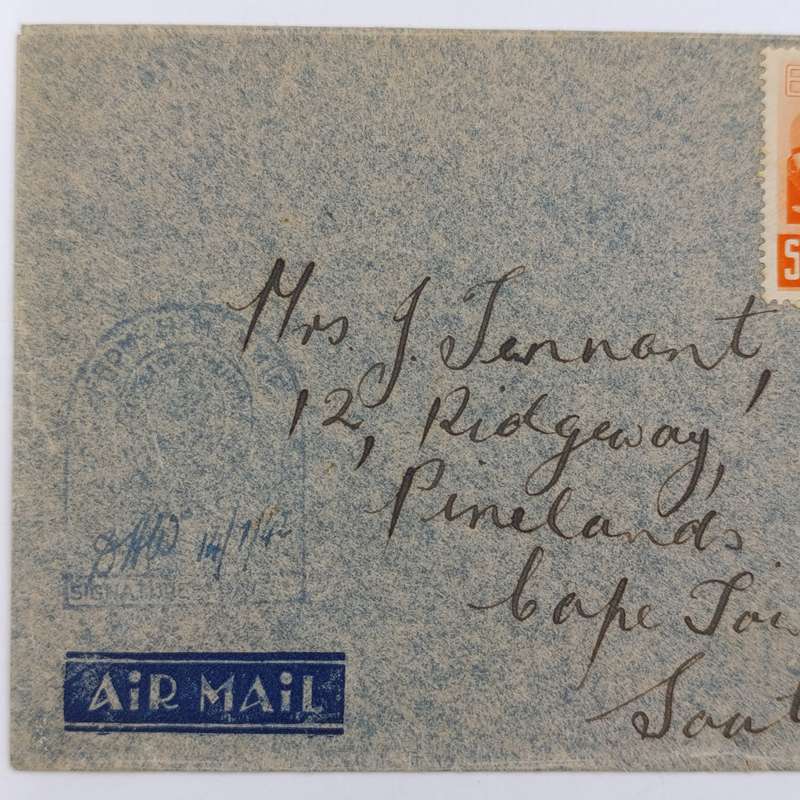 Mrs. J. Tennant,
12, Ridgeway,
Pinelands.
Cape Tow
Sout
14/7/42
SIGNATURE & DATE
AiR MAiL